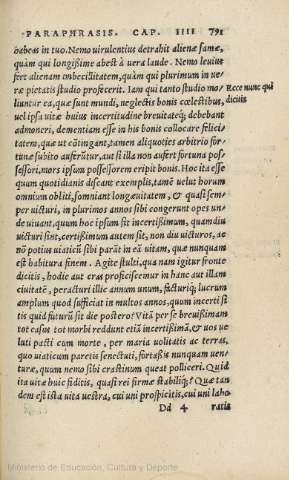 PARAPHRASIS. CAP. IIII 791
habeas in tuo. Nemo virulentius detrahit alienæ famæ,
quàm qui longißime abest à vera laude. Nemo leuius
fert alienam imbecillitatem, quàm qui plurimum in ve-
ræ pietatis studio profecerit. Iam qui tanto studio mo-
liuntur ea, quæ sunt mundi, neglectis bonis cœlestibus,
uel ipsa uitæ huius incertitudine breuitateq́; debebant
admoneri, dementiam esse in his bonis collocare felici-
tatem, quæ ut cōtingant, tamen aliquoties arbitrio for-
tunæ subito auferūtur, aut si illa non aufert fortuna pos-
sessori, mors ipsum possessorem eripit bonis. Hoc ita esse
quum quotidianis discant exemplis, tamē uelut horum
omnium obliti, somniant longæuitatem, & quasi sem-
per uicturi, in plurimos annos sibi congerunt opes un-
de uiuant, quum hoc ipsum sit incertißimum, quamdiu
uicturi sint, certißimum autem sit, non diu uicturos, ac
nō potius uiaticū sibi parāt in eā uitam, quæ nunquam
est habitura finem. Agite stulti, qua nam igitur fronte
dicitis, hodie aut cras proficiscemur in hanc aut illam
ciuitatē, peracturi illic annum unum, facturiq́; lucrum
amplum quod sufficiat in multos annos, quum incerti si
tis quid futurū sit die postero? Vitā per se breuißimam
tot casus tot morbi reddunt etiā incertißimā, & uos ue
luti pacti cum morte, per maria uolitatis ac terras,
quo uiaticum paretis senectuti, fortaßis nunquam uen-
turæ, quum nemo sibi crastinum queat polliceri. Quid
ita uitæ huic fiditis, quasi rei firmæ stabiliq́;? Quæ tan
dem est ista uita uestra, cui uni prospicitis, cui uni labo-
Dd 4 ratis
Ecce nunc qui
dicitis
Ministerio de Educación, Cultura y Deporte